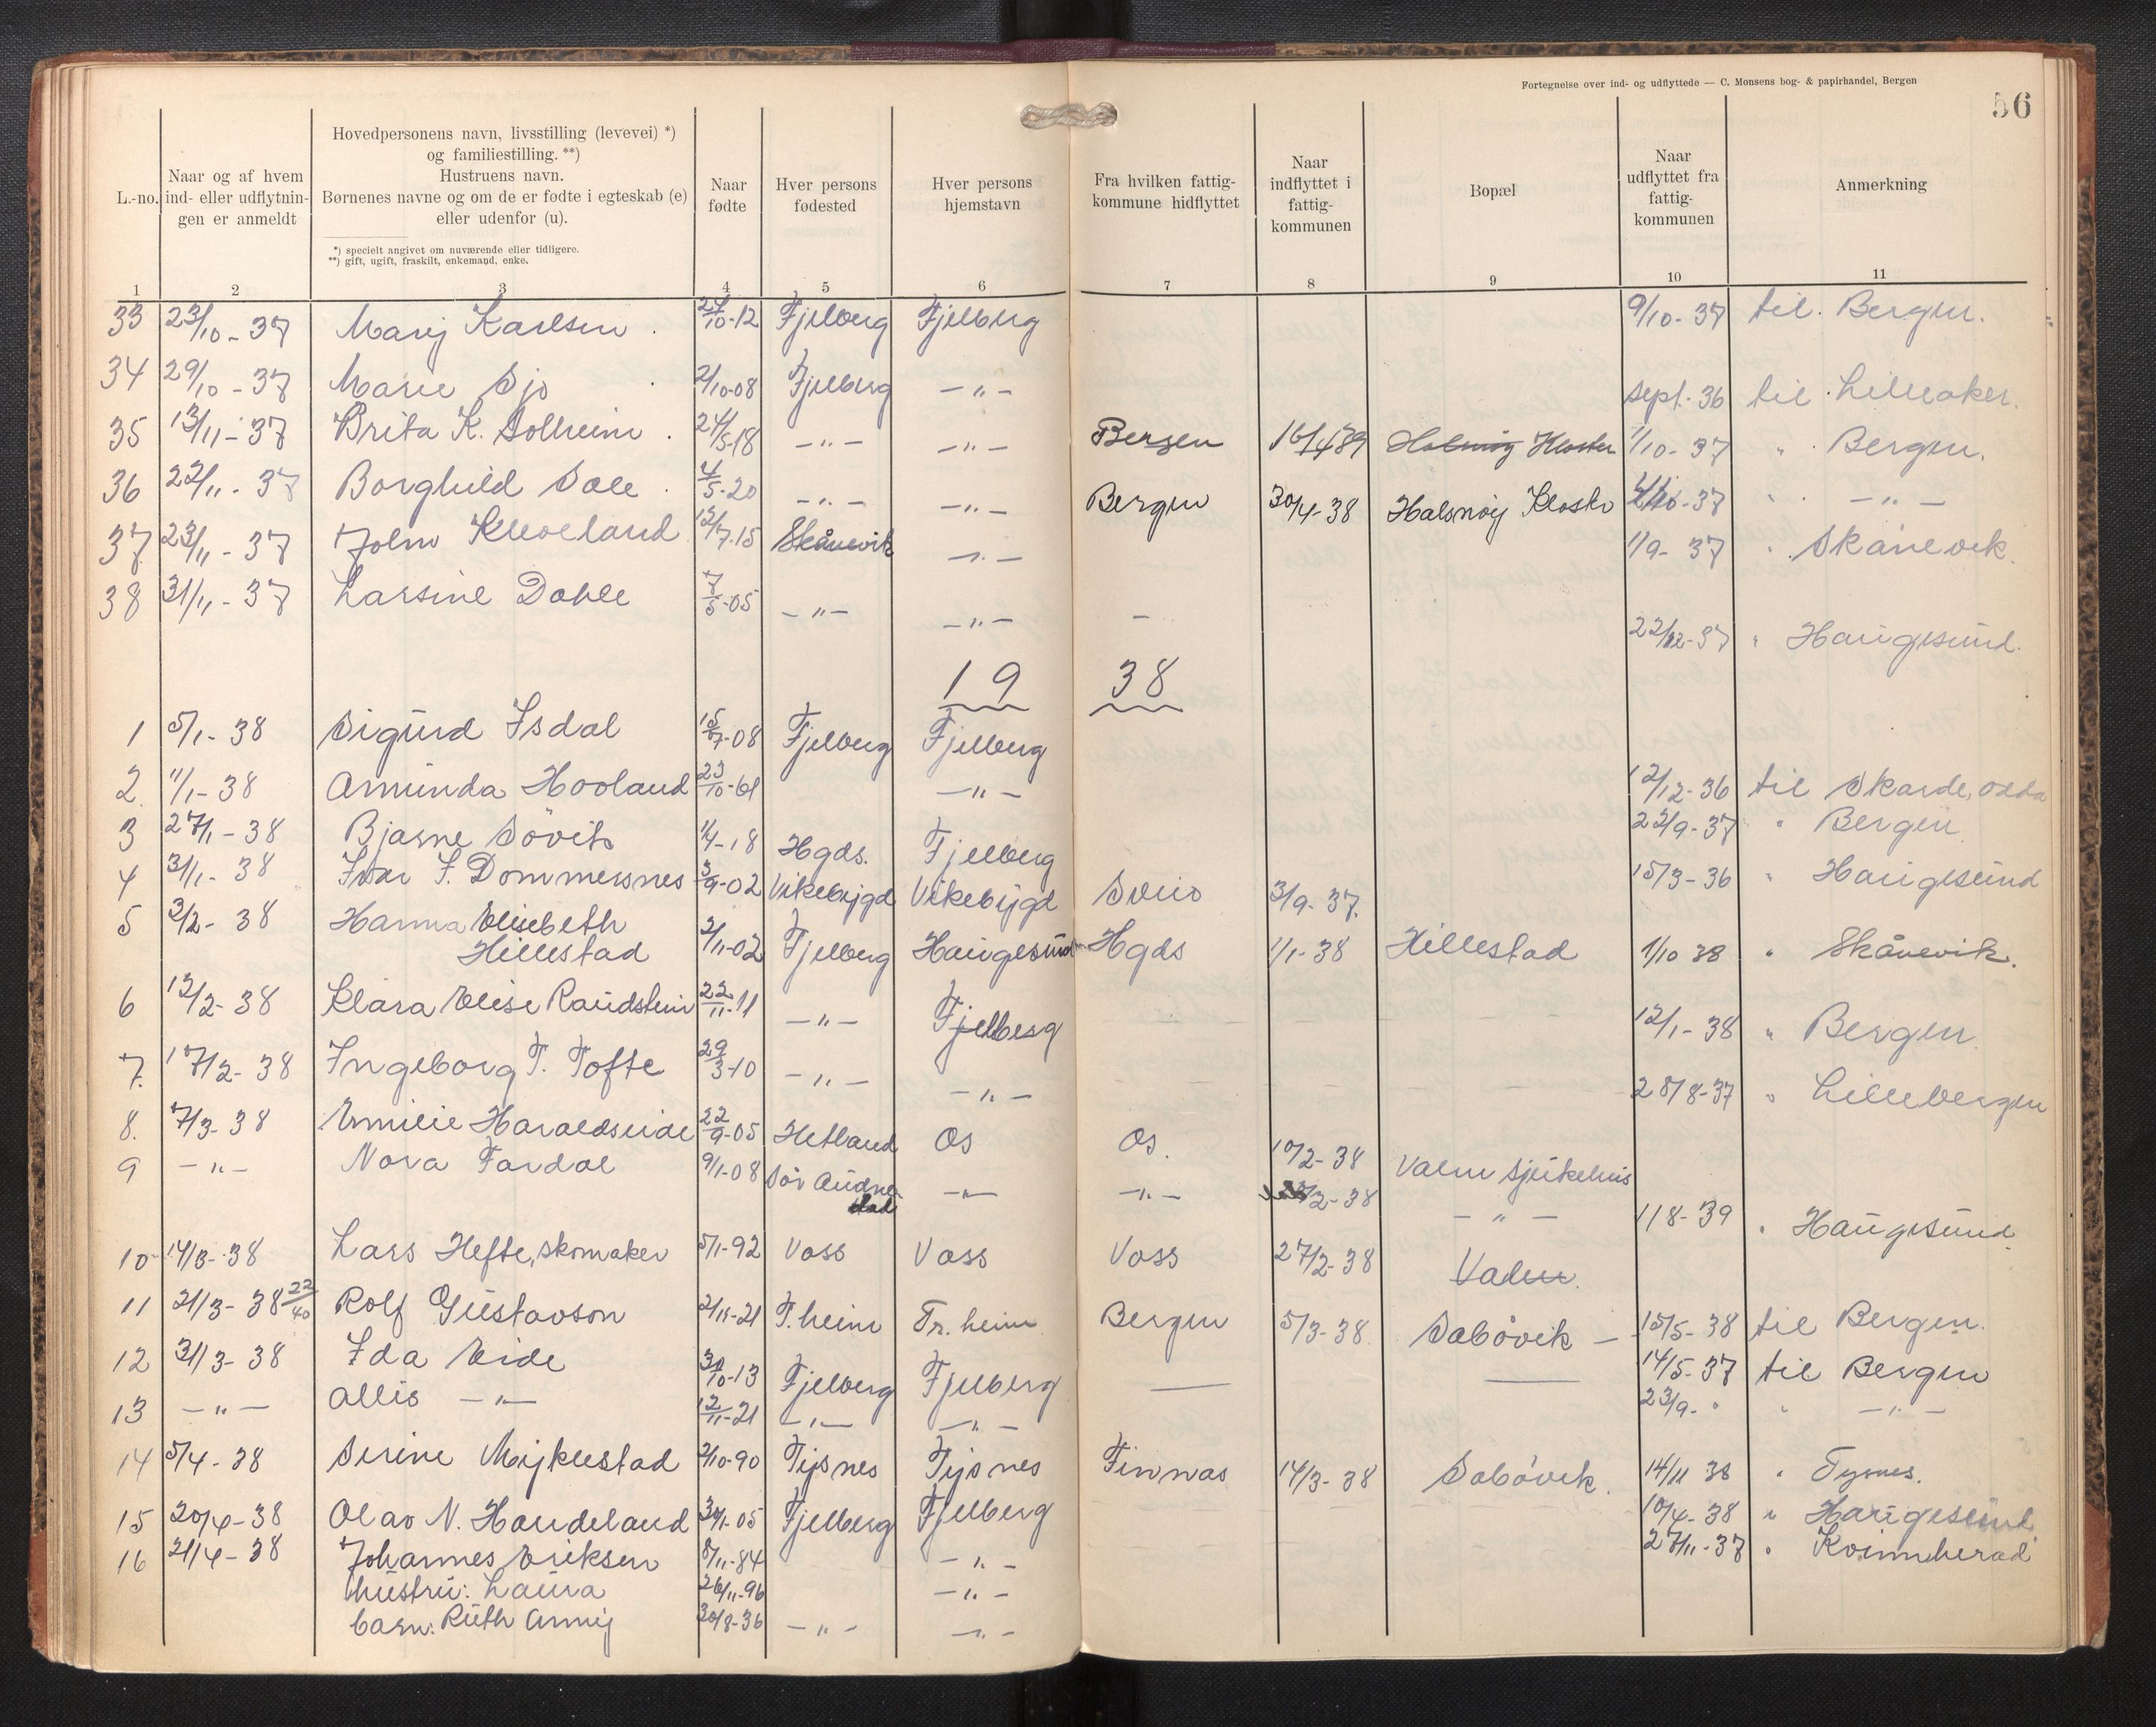 Fortegnelse over ind- og udflyttede — C. Monsens bog- & papirhandel, Bergen
56
L.-no.
Naar og af hvem ind- eller udflytnin- gen er anmeldt
Hovedpersonens navn, livsstilling (levevei) *)
og familiestilling. **)
Hustruens navn.
Børnenes navne og om de er fødte i egteskab (e)
eller udenfor (u).
*) specielt angivet om nuværende eller tidligere.
**) gift, ugift, fraskilt, enkemand, enke.
Naar fødte
Hver persons fødested
Hver persons hjemstavn
Fra hvilken fattig- kommune hidflyttet
Naar indflyttet i fattig- kommunen
Bopæl
Naar udflyttet fra fattig- kommunen
Anmerkning
1 2 3 4 5 6 7 8 9 10 11
33 23/10-37 Mary Karlsen 27/10-12 Fjelberg Fjelberg 9/10-37 til Bergen.
34 29/10-37 Marie Sjo 2/10-08 Fjelberg -"- sept. 36 til Lilleaker.
35 13/11-37 Brita K. Solheim 24/5-18 -"- -"- Bergen Halsnøy Kloster 1/10-37 " Bergen.
36 22/11-37 Borghild Sæle 4/5-20 -"- -"- Bergen 30/4-38 Halsnøy Kloster " -"-
37 23/11-37 John Kleveland 12/7-15 Skånevik -"- 1/9-37 " Skånevik.
38 31/11-37 Larsine Dahle 7/5-05 -"- -"- - 22/12-37 " Haugesund.
19 38
1 5/1-38 Sigurd Isdal 15/7-08 Fjelberg Fjelberg
2. 11/1-38 Amunda Hovland 23/10-61 -"- 12/12-36 til Skarde, Odda
3 27/1-38 Bjarne Søvik 1/4-18 Hgds. Fjelberg 22/9-37 " Bergen
4 31/1-38 Ivar I. Dommersnes 3/9-02 Vikebygd Vikebygd Sveio 3/9-37. 15/3-36 " Haugesund
5 3/2-38 Hanna Elisebeth
Hillestad 2/11-02 Fjelberg Haugesund Hgds 1/1-38 Hillestad 1/10 38 " Skånevik.
6 12/2-38 Klara Elise Raudstein 22/11-11 -"- Fjelberg 12/1-38 " Bergen.
7. 17/2-38 Ingeborg T. Tofte 29/3-10 -"- -"- 28/8-37 " Lillebergen
8. 7/3-38 Emilie Haraldseide 22/9-05 Hetland Os Os. 10/2-38 Valen sjukehus
9 -"- Nora Fardal 9/1-08 Sør Audne dal -"- -"- /2-38 -"- 1/8-39 " Haugesund.
10 14/3-38 Lars Hefte, skomaker 5/1-92 Voss Voss Voss 27/2-38 Valen.
11 21/3-38 22/40 Rolf Gustavson 2/11-21 T.heim Tr.heim Bergen 5/3-38. Sæbøvik - 15/5-38 til Bergen.
12 31/3-38 Ida Eide 30/10-13 Fjelberg Fjelberg — — 14/5-37 til Bergen
13 -"- Allis -"- 12/11-21 -"- -"- 23/9- " " -"-
14 5/4-38 Serine Myklestad 2/10-90 Tysnes Tysnes Finnås 14/3-38 Sæbøvik. 14/11 38 " Tysnes.
15 20/4-38 Olav N. Handeland 30/1-05 Fjelberg Fjelberg 10/4-38 " Haugesund.
16 21/4-38 Johannes Eriksen 8/11-84 -"- 27/11-37 " Kvinnherad
hustru: Laura 26/11-96 -"-
barn: Ruth Anny 30/8-36 -"- -"-